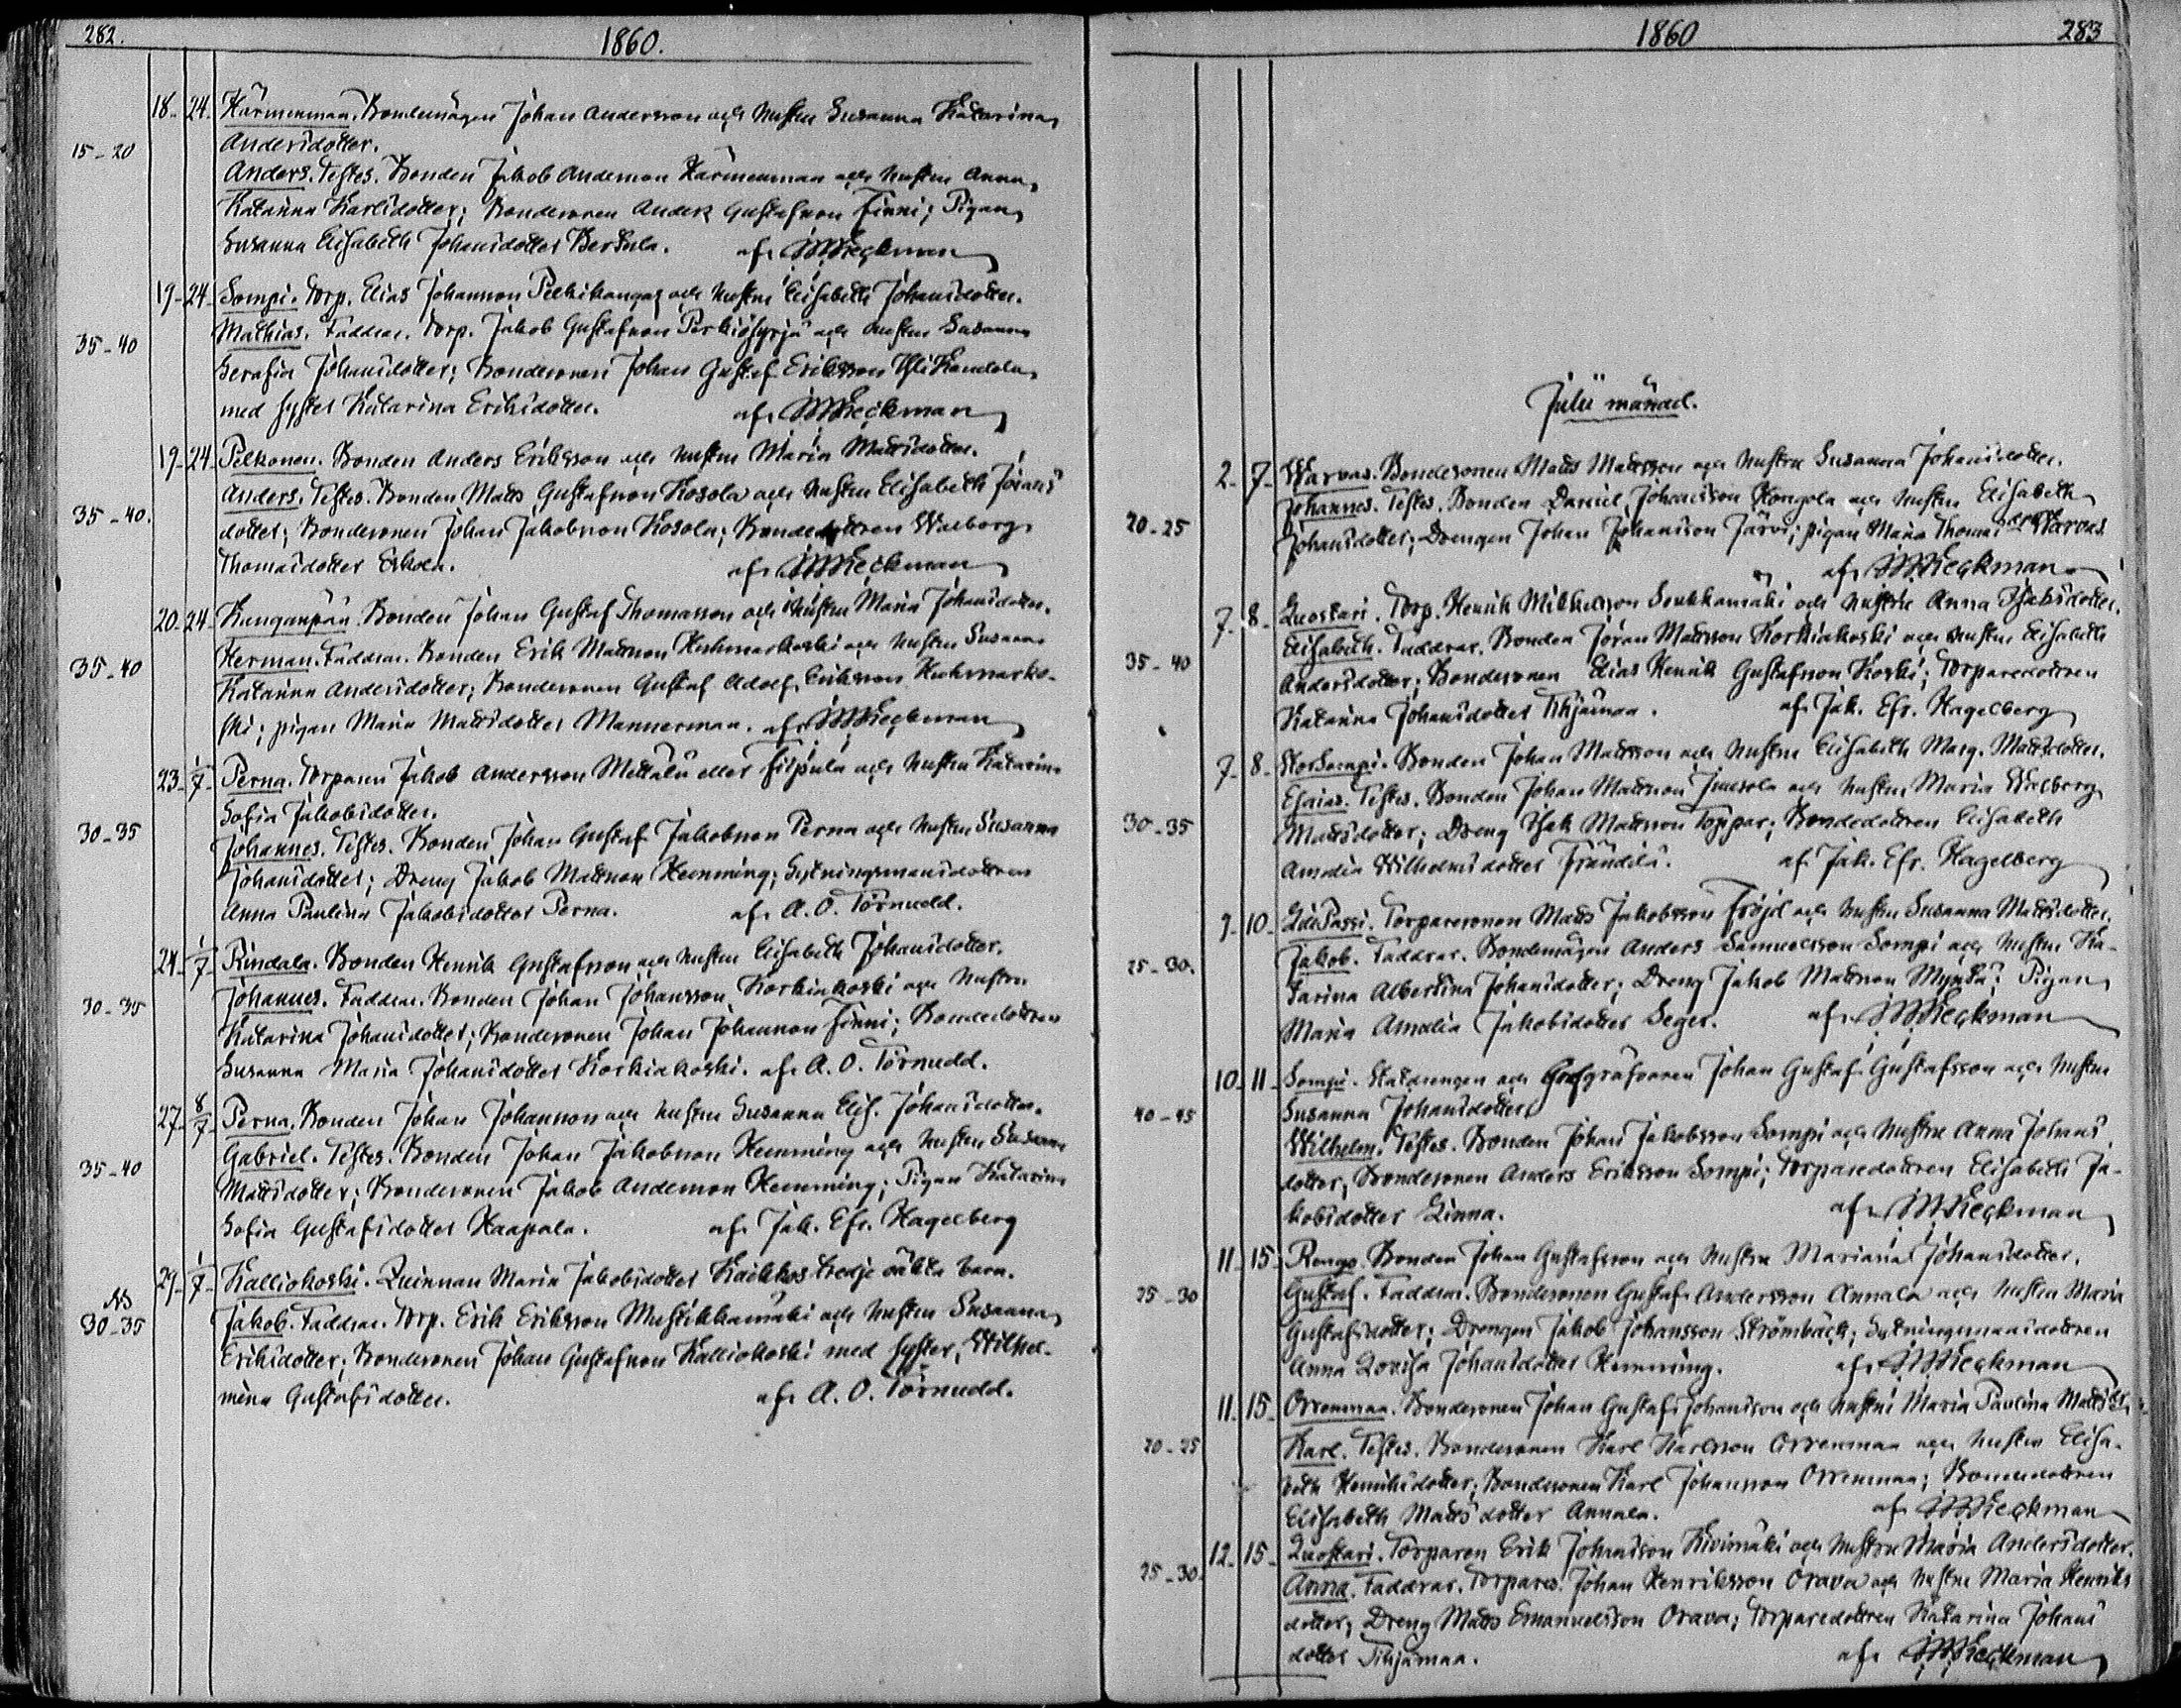 282.
1860.
18. 24. Kärmenmaa. Bondemågen Johan Andersson och hustru Susanna Katarina
15-20
Andersdotter.
Anders. Testes. Bonden Jakob Andersson Kärmenmaa och hustru Anna
Katarina Karlsdotter; Bondesonen Anders Gustafsson Finni; Pigan
Susanna Elisabeth Johansdotter Bertula. af
19- 24. Sompi. Torp. Elias Johansson Pelkikangas och hustru Elisabeth Johansdotter.
Mathias. Faddrar. Torp. Jakob Gustafsson och hustru Susanna
35-40
Serafia Johansdotter; Bondesonen Johan Gustaf Eriksson
med syster Katarina Eriksdotter. af
19- 24. Pelkonen. Bonden Anders Eriksson och hustru Maria Mattsdotter.
Anders. Testes. Bonden Matts Gustafsson Kosola och hustru Elisabeth Jörans
35-40.
dotter; Bondesonen Johan Jakobsson Kosola; Bondedottren Walborg
Thomasdotter af
20- 24. Kanganpää. Bonden Johan Gustaf Thomasson och hustru Maria Johansdotter.
Herman. Faddrar. Bonden Erik Mattsson Kuhmarkoski och hustru Susanna
35-40
Katarina Andersdotter; Bondesonen Gustaf Adolf Eriksson Kuhmarko-
ski; pigan Maria Mattsdotter Mannermaa. af
23- 1/7 Perna. Torparen Jakob Andersson Mettälä eller Filpula och hustru Katarina
Sofia Jakobsdotter.
30-35
Johannes. Testes. Bonden Johan Gustaf Jakobsson Perna och hustru Susanna
Johansdotter; Dreng Jakob Mattsson Hemming; Sytningsmansdottren
Anna Paulina Jakobsdotter Perna. af A. O. Törnudd.
24- 1/7 Rindala. Bonden Henrik Gustafsson och hustru Elisabeth Johansdotter.
Johannes. Faddrar. Bonden Johan Johansson Korkiakoski och hustru
30-35
Katarina Johansdotter; Bondesonen Johan Johansson Finni; Bondedottren
Susanna Maria Johansdotter Korkiakoski. af A. O. Törnudd.
27- 8/7 Perna. Bonden Johan Johansson och hustru Susanna Elis. Johansdotter.
Gabriel. Testes. Bonden Johan Jakobsson Hemming och hustru Susanna
35-40
Mattsdotter; Bondesonen Jakob Andersson Hemming; Pigan Katarina
Sofia Gustafsdotter Haapala. af Jak. Efr. Hagelberg
29- 1/7 Kalliokoski. Quinnan Maria Jakobsdotter tredje oäkta barn.
30-35
Jakob. Faddrar. Torp. Erik Eriksson Mustikkamäki och hustru Susanna
Eriksdotter; Bondesonen Johan Gustafsson Kalliokoski med syster, Wilhel-
mina Gustafsdotter. af A. O. Törnudd.
1860
283
Julii månad.
2. 7- Warvas. Bondesonen Matts Mattsson och hustru Susanna Johansdotter.
Johannes. Testes. Bonden Daniel Johansson Kongola och hustru Elisabeth
20-25
Johansdotter; Drengen Johan Johansson Järvi; pigan Maria Thomasdr Warvas
af
7- 8- Luostari. Torp. Henrik Mikkelsson Soukkamäki och hustru Anna Isaksdotter.
Elisabeth. Faddrar. Bonden Jöran Mattsson Korkiakoski och hustru Elisabeth
35-40
Andersdotter; Bondesonen Elias Henrik Gustafsson Koski; Torparedottren
Katarina Johansdotter Tihjämaa. af Jak. Efr. Hagelberg
7- 8- StorSompi. Bonden Johan Mattsson och hustru Elisabeth Marg. Mattsdotter.
Esaias. Testes. Bonden Johan Mattsson Juusola och hustru Maria Walborg
30-35
Mattsdotter; Dreng Isak Mattsson Toppar; Bondedottren Elisabeth
Amalia Wilhelmsdotter Frändilä. af Jak. Efr. Hagelberg
9- 10- Torparesonen Matts Jakobsson Fröjd och hustru Susanna Mattsdotter.
Jakob. Faddrar. Bondemågen Anders Samuelsson Sompi och hustru Ka-
25-30.
tarina Albertina Johansdotter; Dreng Jakob Mattsson Pigan
Maria Amalia Jakobsdotter Seger. af
10- 11- Sompi. Statdrengen och Johan Gustaf Gustafsson och hustru
Susanna Johansdotter
40-45
Wilhelm. Testes. Bonden Johan Jakobsson Sompi och hustru Anna Johans
dotter; Bondesonen Anders Eriksson Sompi; Torparedottren Elisabeth Ja-
kobsdotter Linna. af
11- 15- Rengo. Bonden Johan Gustafsson och hustru Mariana Johansdotter.
Gustaf. Faddrar. Bondesonen Gustaf Andersson Annala och hustru Maria
25-30
Gustafsdotter; Drengen Jakob Johansson Strömbäck; Sytningsmansdottren
Anna Lovisa Johansdotter Hemming. af
11- 15- Orrenmaa. Bondesonen Johan Gustaf Johansson och hustru Maria Paulina Mattsdr
Karl. Testes. Bondesonen Karl Karlsson Orrenmaa och hustru Elisa-
20-25
beth Henriksdotter; Bondesonen Karl Johansson Orrenmaa; Bondedottren
Elisabeth Mattsdotter Annala. af
12- 15- Luostari. Torparen Erik Johansson Kivimäki och hustru Maria Andersdotter.
Anna. Faddrar. Torparen Johan Henriksson Orava och hustru Maria Henriks
25-30.
dotter; Dreng Matts Emanuelsson Orava; Torparedottren Katarina Johans
dotter Tihjämaa. af